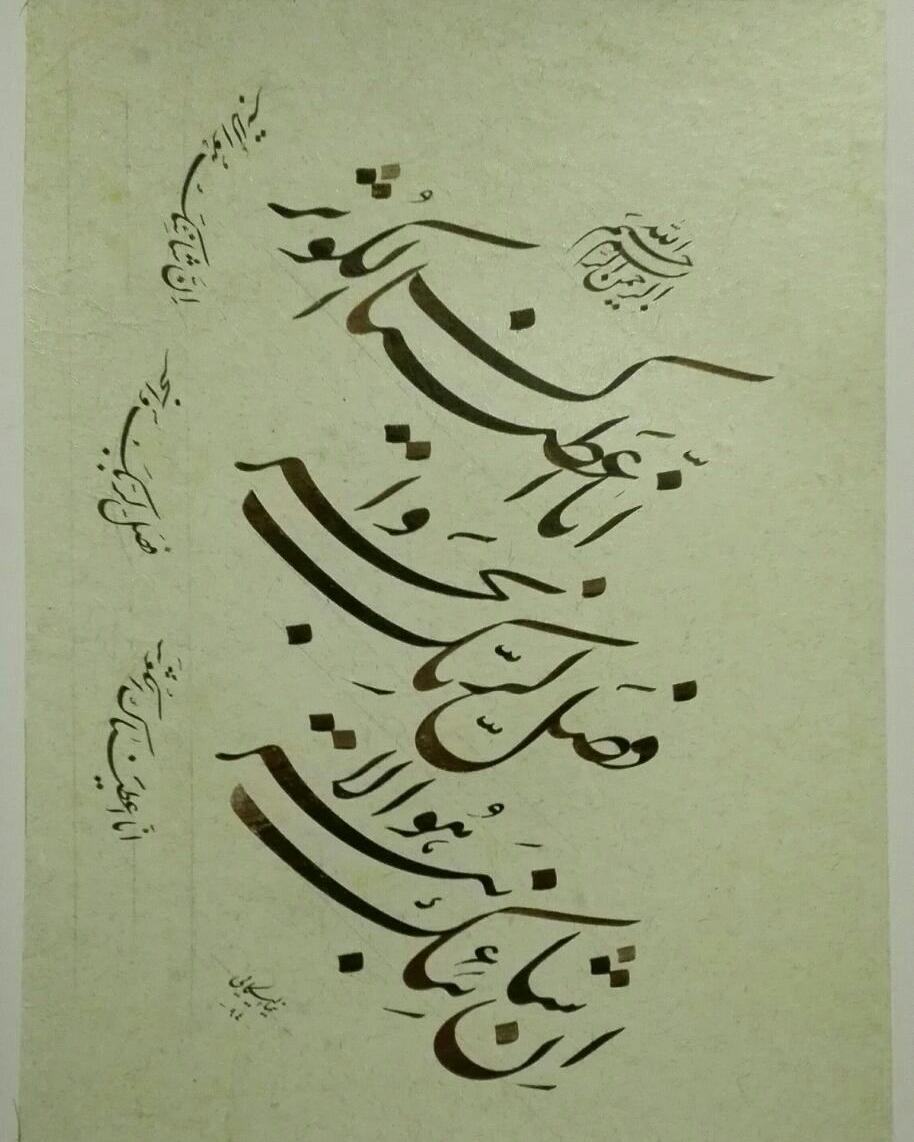 بسم الله الرحمن الرحیم
انّا اعطیناک الکوثر
فصلّ لربّک وانحر
اِنّ شانئک هُوَ الابتر
انّا اعطیناک الکوثر
فصل لربک وانحر
اِنّ شانئک هو الابتر